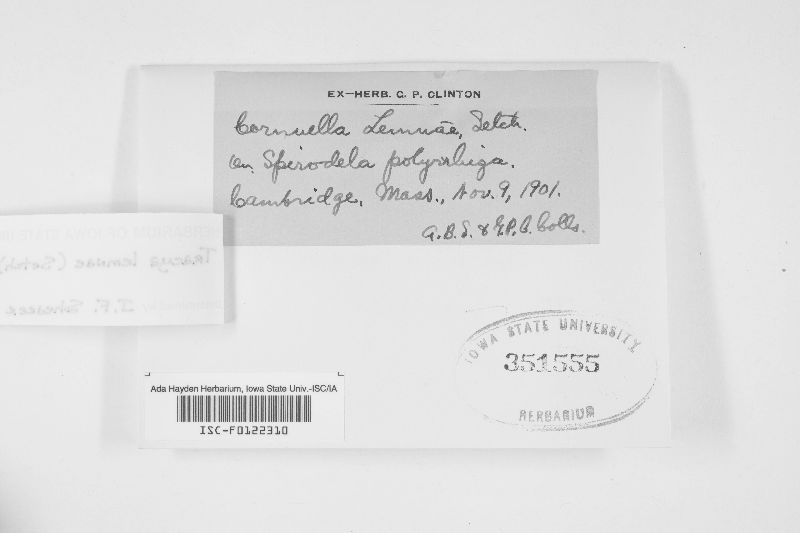 EX—HERB. G. P. CLINTON
Cornuella Lemnae, Setch.
On Spirodela polyrrhiza.
Cambridge, Mass., Nov. 9, 1901.
A.B.S. & G.P.C. Colls.
HERBARIUM OF IOWA STATE
Tracya lemnae (Setch)
by J.F.
IOWA STATE UNIVERSITY
351555
HERBARIUM
Ada Hayden Herbarium, Iowa State Univ.-ISC/IA
ISC-F0122310